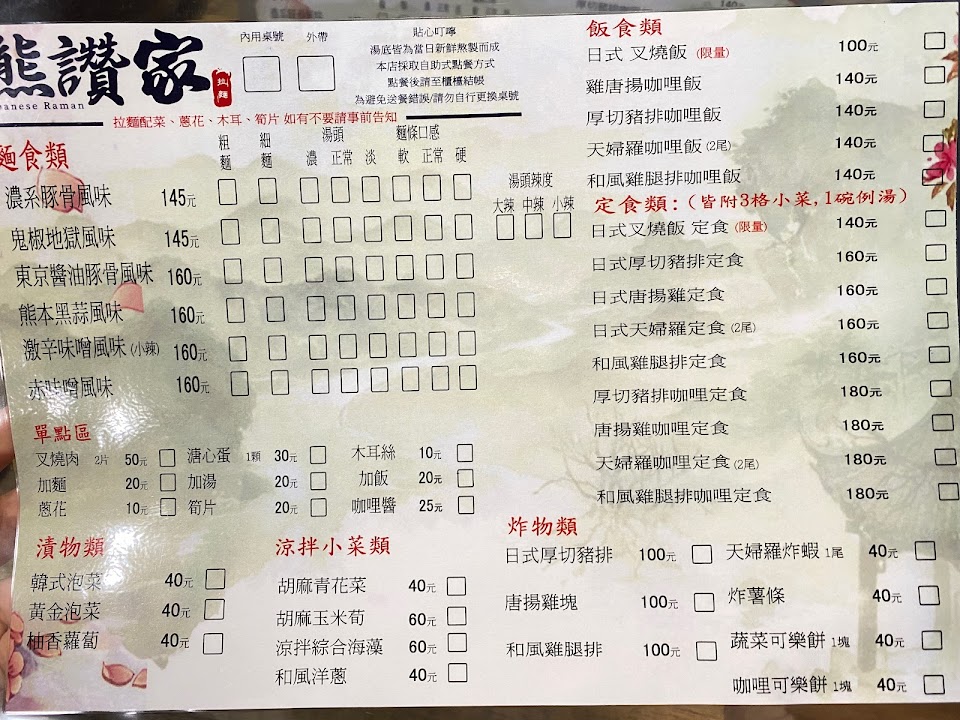 熊讚家
拉麵
panese Raman
內用桌號 外帶
貼心叮嚀
湯底皆為當日新鮮熬製而成
本店採取自助式點餐方式
點餐後請至櫃檯結帳
為避免送餐錯誤/請勿自行更換桌號
拉麵配菜、蔥花、木耳、筍片 如有不要請事前告知
麵食類
粗麵 細麵 湯頭 麵條口感
濃 正常 淡 軟 正常 硬
濃系豚骨風味 145元
鬼椒地獄風味 145元
東京醬油豚骨風味 160元
熊本黑蒜風味 160元
激辛味噌風味(小辣) 160元
赤味噌風味 160元
湯頭辣度
大辣 中辣 小辣
單點區
叉燒肉 2片 50元 溏心蛋 1顆 30元 木耳絲 10元
加麵 20元 加湯 20元 加飯 20元
蔥花 10元 筍片 20元 咖哩醬 25元
漬物類
韓式泡菜 40元
黃金泡菜 40元
柚香蘿蔔 40元
涼拌小菜類
胡麻青花菜 40元
胡麻玉米筍 60元
涼拌綜合海藻 60元
和風洋蔥 40元
飯食類
日式 叉燒飯 (限量) 100元
雞唐揚咖哩飯 140元
厚切豬排咖哩飯 140元
天婦羅咖哩飯(2尾) 140元
和風雞腿排咖哩飯 140元
定食類:(皆附3格小菜,1碗例湯)
日式叉燒飯 定食(限量) 140元
日式厚切豬排定食 160元
日式唐揚雞定食 160元
日式天婦羅定食(2尾) 160元
和風雞腿排定食 160元
厚切豬排咖哩定食 180元
唐揚雞咖哩定食 180元
天婦羅咖哩定食(2尾) 180元
和風雞腿排咖哩定食 180元
炸物類
日式厚切豬排 100元 天婦羅炸蝦 1尾 40元
唐揚雞塊 100元 炸薯條 40元
和風雞腿排 100元 蔬菜可樂餅 1塊 40元
咖哩可樂餅 1塊 40元